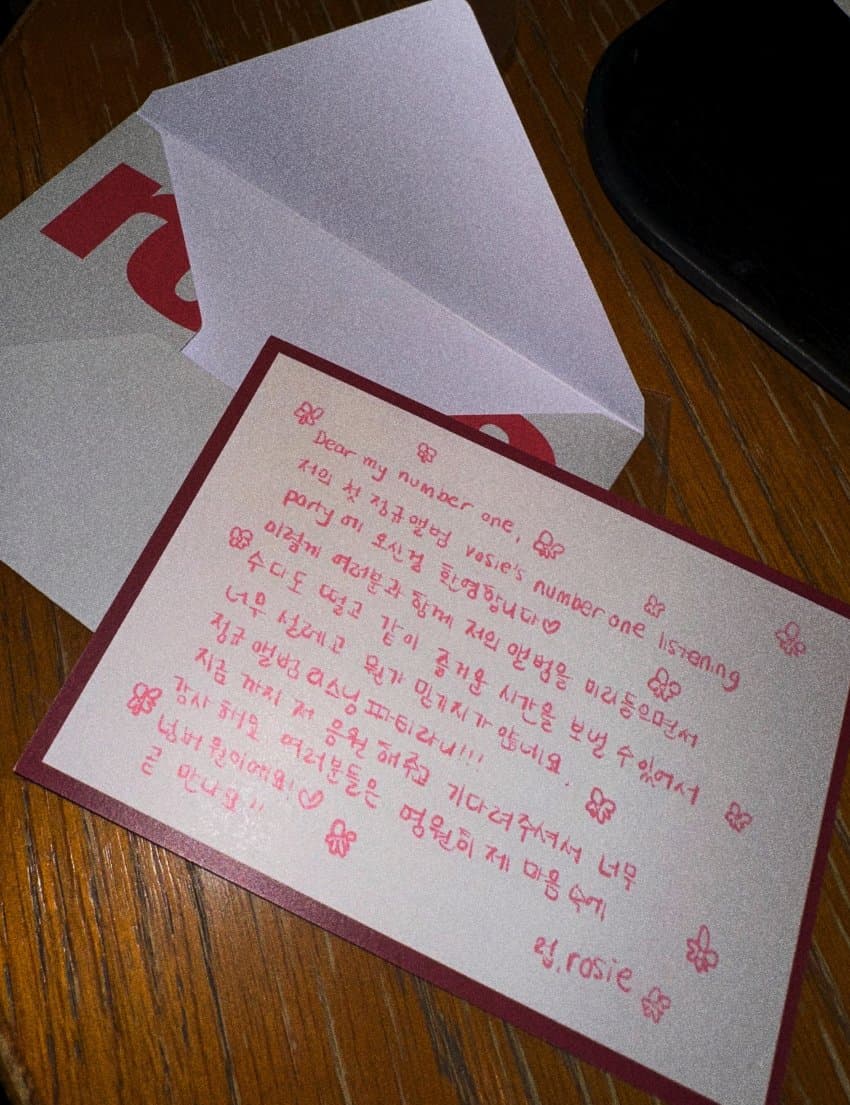 Dear my number one,
저의 첫 정규앨범 rosie's number one listening
party 에 오신걸 환영합니다♡
이렇게 여러분과 함께 저의 앨범을 미리들으면서
수다도 떨고 같이 즐거운 시간을 보낼 수 있어서
너무 설레고 뭔가 믿기지가 않네요.
정규 앨범 리스닝 파티라니!!!
지금 까지 저 응원 해주고 기다려주셔서 너무
감사 해요 여러분들은 영원히 제 마음 속에
넘버 원이에요!♡
곧 만나요!!
럽, rosie